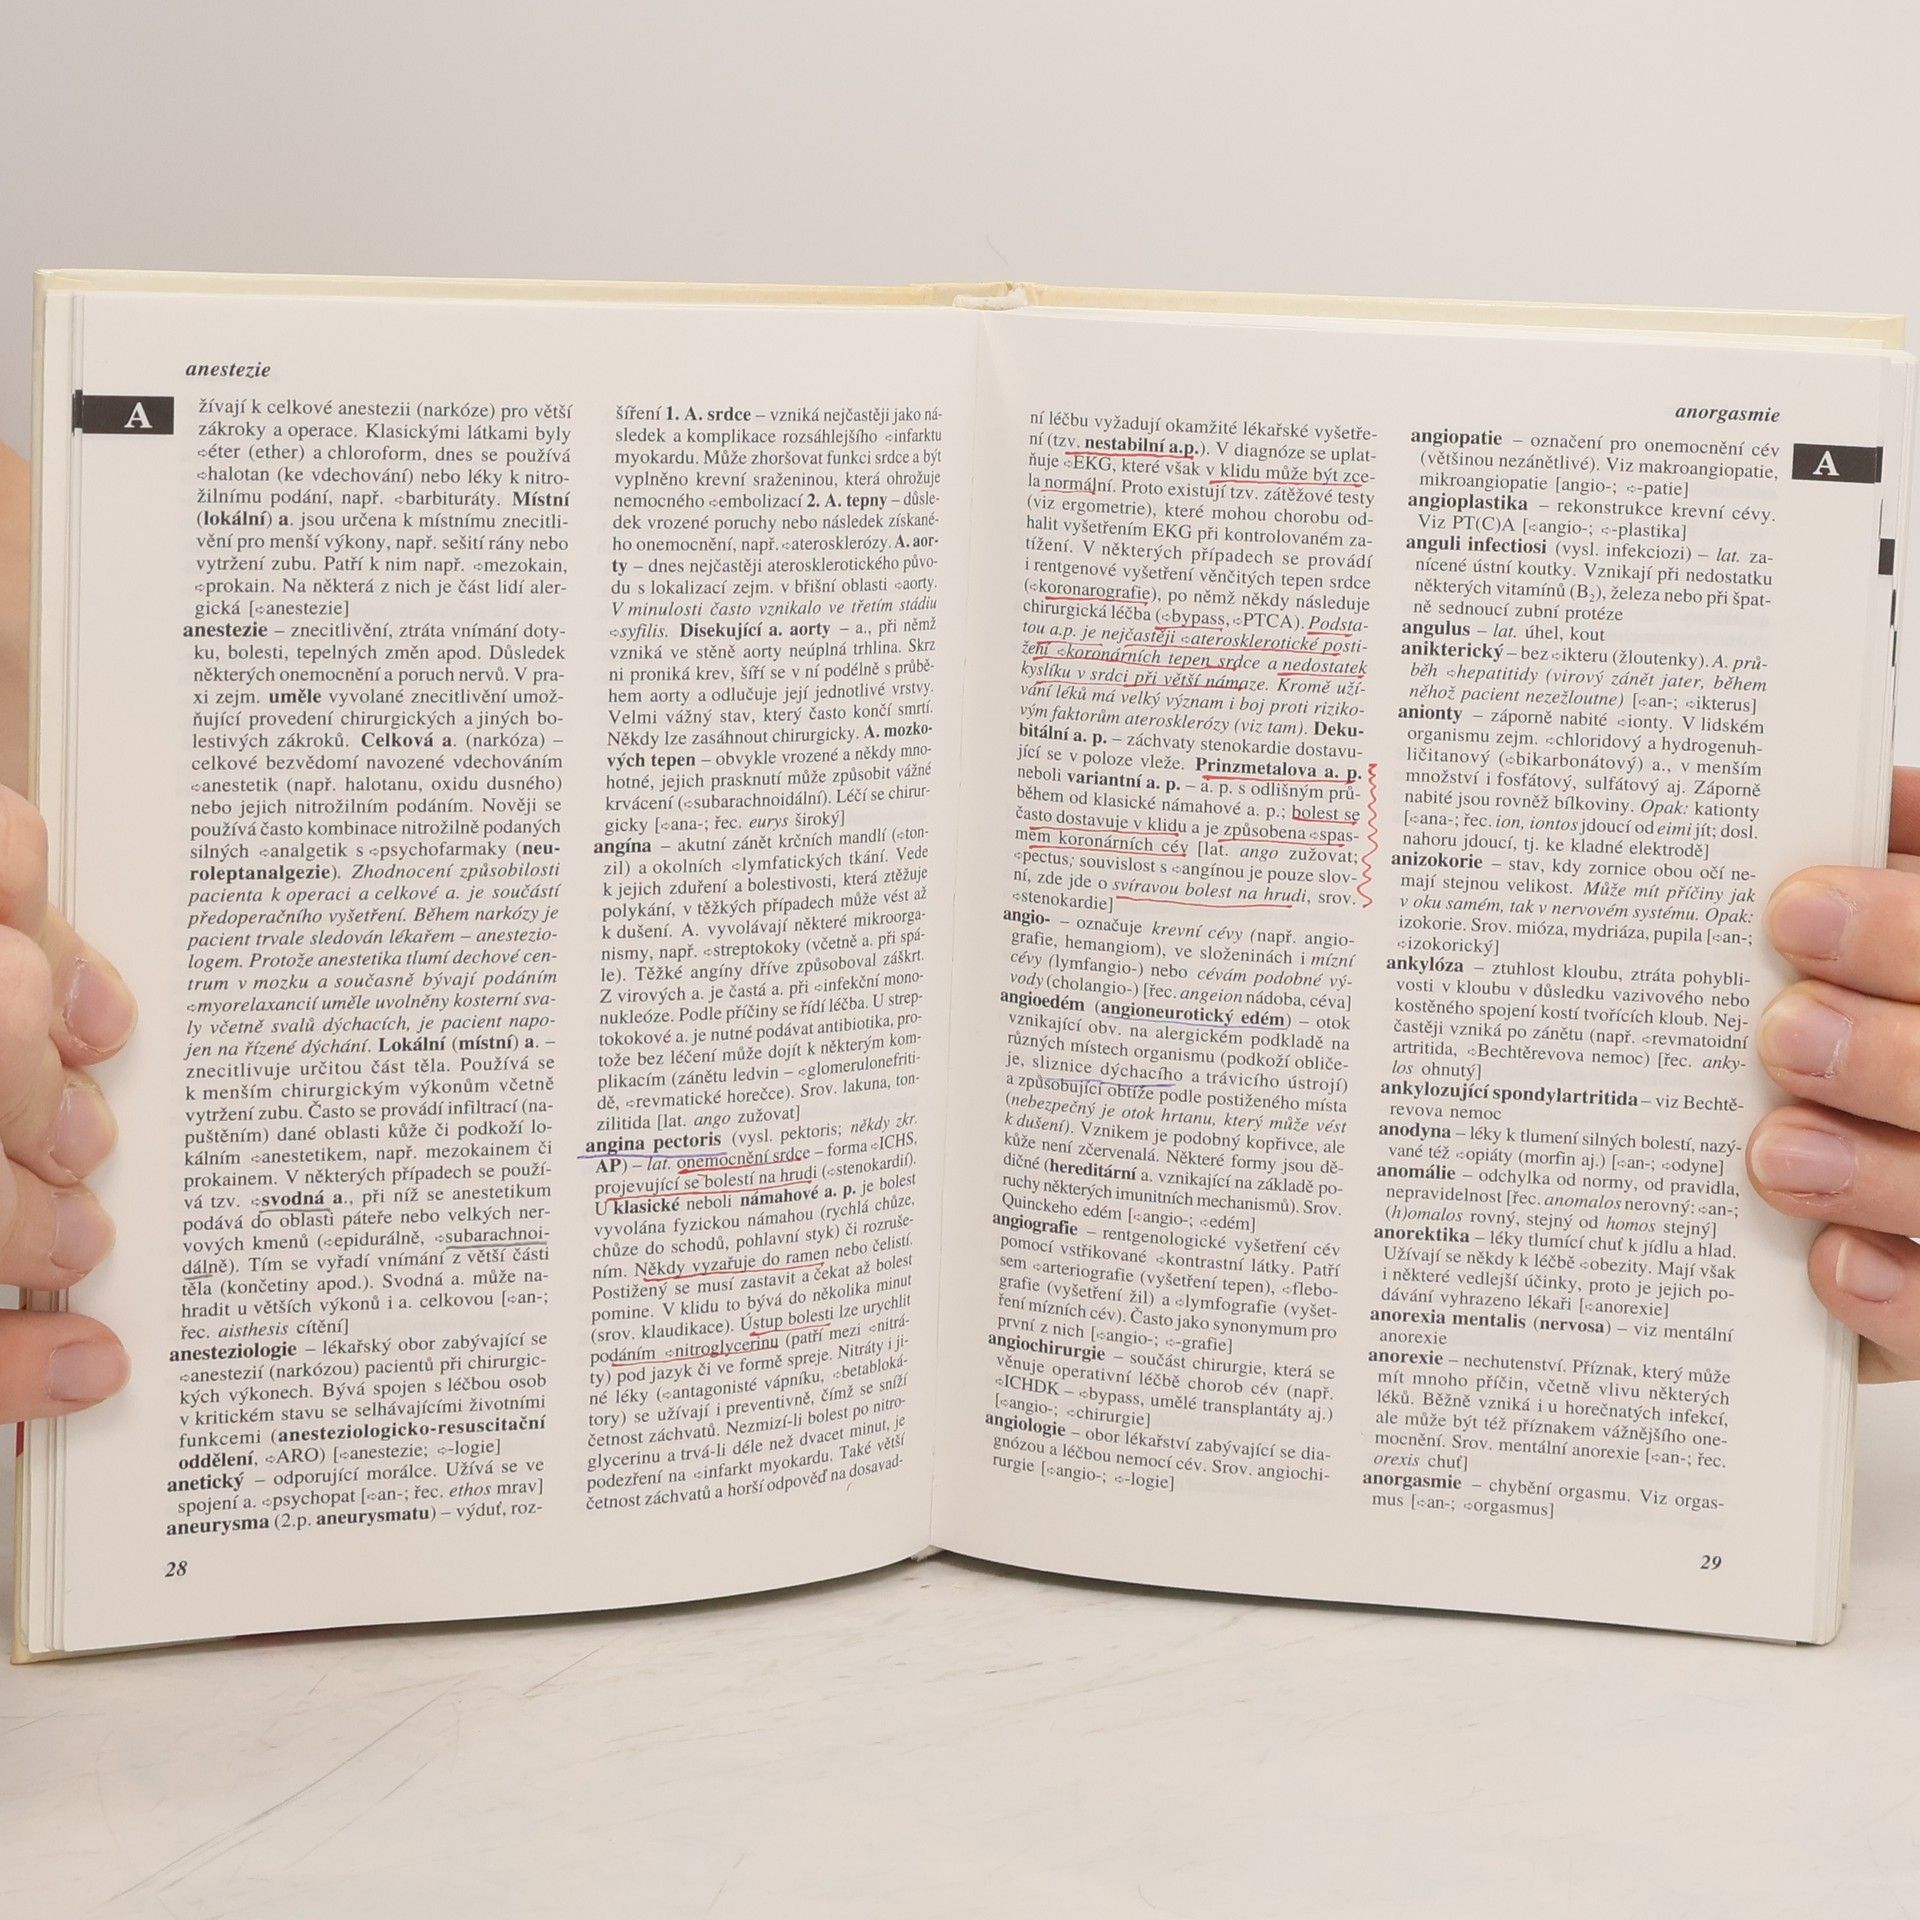 anestezie
A
žívají k celkové anestezii (narkóze) pro větší
zákroky a operace. Klasickými látkami byly
➪éter (ether) a chloroform, dnes se používá
➪halotan (ke vdechování) nebo léky k nitro-
žilnímu podání, např. ➪barbituráty. Místní
(lokální) a. jsou určena k místnímu znecitli-
vění pro menší výkony, např. sešití rány nebo
vytržení zubu. Patří k nim např. ➪mezokain,
➪prokain. Na některá z nich je část lidí aler-
gická [➪anestezie]
anestezie – znecitlivění, ztráta vnímání doty-
ku, bolesti, tepelných změn apod. Důsledek
některých onemocnění a poruch nervů. V pra-
xi zejm. uměle vyvolané znecitlivění umož-
ňující provedení chirurgických a jiných bo-
lestivých zákroků. Celková a. (narkóza) –
celkové bezvědomí navozené vdechováním
➪anestetik (např. halotanu, oxidu dusného)
nebo jejich nitrožilním podáním. Nověji se
používá často kombinace nitrožilně podaných
silných ➪analgetik s ➪psychofarmaky (neu-
roleptanalgezie). Zhodnocení způsobilosti
pacienta k operaci a celkové a. je součástí
předoperačního vyšetření. Během narkózy je
pacient trvale sledován lékařem – anestezio-
logem. Protože anestetika tlumí dechové cen-
trum v mozku a současně bývají podáním
➪myorelaxancií uměle uvolněny kosterní sva-
ly včetně svalů dýchacích, je pacient napo-
jen na řízené dýchání. Lokální (místní) a. –
znecitlivuje určitou část těla. Používá se
k menším chirurgickým výkonům včetně
vytržení zubu. Často se provádí infiltrací (na-
puštěním) dané oblasti kůže či podkoží lo-
kálním ➪anestetikem, např. mezokainem či
prokainem. V některých případech se použí-
vá tzv. ➪svodná a., při níž se anestetikum
podává do oblasti páteře nebo velkých ner-
vových kmenů (➪epidurálně, ➪subarachnoi-
dálně). Tím se vyřadí vnímání z větší části
těla (končetiny apod.). Svodná a. může na-
hradit u větších výkonů i a. celkovou [➪an-;
řec. aisthesis cítění]
anesteziologie – lékařský obor zabývající se
➪anestezií (narkózou) pacientů při chirurgic-
kých výkonech. Bývá spojen s léčbou osob
v kritickém stavu se selhávajícími životními
funkcemi (anesteziologicko-resuscitační
oddělení, ➪ARO) [➪anestezie; ➪-logie]
anetický – odporující morálce. Užívá se ve
spojení a. ➪psychopat [➪an-; řec. ethos mrav]
aneurysma (2.p. aneurysmatu) – výduť, roz-
28
šíření 1. A. srdce – vzniká nejčastěji jako ná-
sledek a komplikace rozsáhlejšího ➪infarktu
myokardu. Může zhoršovat funkci srdce a být
vyplněno krevní sraženinou, která ohrožuje
nemocného ➪embolizací 2. A. tepny – důsle-
dek vrozené poruchy nebo následek získané-
ho onemocnění, např. ➪aterosklerózy. A. aor-
ty – dnes nejčastěji aterosklerotického půvo-
du s lokalizací zejm. v břišní oblasti ➪aorty.
V minulosti často vznikalo ve třetím stádiu
➪syfilis. Disekující a. aorty – a., při němž
vzniká ve stěně aorty neúplná trhlina. Skrz
ni proniká krev, šíří se v ní podélně s průbě-
hem aorty a odlučuje její jednotlivé vrstvy.
Velmi vážný stav, který často končí smrtí.
Někdy lze zasáhnout chirurgicky. A. mozko-
vých tepen – obvykle vrozené a někdy mno-
hotné, jejich prasknutí může způsobit vážné
krvácení (➪subarachnoidální). Léčí se chirur-
gicky [➪ana-; řec. eurys široký]
angína – akutní zánět krčních mandlí (➪ton-
zil) a okolních ➪lymfatických tkání. Vede
k jejich zduření a bolestivosti, která ztěžuje
polykání, v těžkých případech může vést až
k dušení. A. vyvolávají některé mikroorga-
nismy, např. ➪streptokoky (včetně a. při spá-
le). Těžké angíny dříve způsoboval záškrt.
Z virových a. je častá a. při ➪infekční mono-
nukleóze. Podle příčiny se řídí léčba. U strep-
tokokové a. je nutné podávat antibiotika, pro-
tože bez léčení může dojít k některým kom-
plikacím (zánětu ledvin – ➪glomerulonefriti-
dě, ➪revmatické horečce). Srov. lakuna, ton-
zilitida [lat. ango zužovat]
angina pectoris (vysl. pektoris; někdy zkr.
AP) – lat. onemocnění srdce – forma ➪ICHS,
projevující se bolestí na hrudi (➪stenokardií).
U klasické neboli námahové a. p. je bolest
vyvolána fyzickou námahou (rychlá chůze,
chůze do schodů, pohlavní styk) či rozruše-
ním. Někdy vyzařuje do ramen nebo čelistí.
Postižený se musí zastavit a čekat až bolest
pomine. V klidu to bývá do několika minut
(srov. klaudikace). Ústup bolesti lze urychlit
podáním ➪nitroglycerinu (patří mezi ➪nitrá-
ty) pod jazyk či ve formě spreje. Nitráty i ji-
né léky (➪antagonisté vápníku, ➪betabloká-
tory) se užívají i preventivně, čímž se sníží
četnost záchvatů. Nezmizí-li bolest po nitro-
glycerinu a trvá-li déle než dvacet minut, je
podezření na ➪infarkt myokardu. Také větší
četnost záchvatů a horší odpověď na dosavad-
anorgasmie
A
ní léčbu vyžadují okamžité lékařské vyšetře-
ní (tzv. nestabilní a.p.). V diagnóze se uplat-
ňuje ➪EKG, které však v klidu může být zce-
la normální. Proto existují tzv. zátěžové testy
(viz ergometrie), které mohou chorobu od-
halit vyšetřením EKG při kontrolovaném za-
tížení. V některých případech se provádí
i rentgenové vyšetření věnčitých tepen srdce
(➪koronarografie), po němž někdy následuje
chirurgická léčba (➪bypass, ➪PTCA). Podsta-
tou a.p. je nejčastěji ➪aterosklerotické posti-
žení ➪koronárních tepen srdce a nedostatek
kyslíku v srdci při větší námaze. Kromě uží-
vání léků má velký význam i boj proti riziko-
vým faktorům aterosklerózy (viz tam). Deku-
bitální a. p. – záchvaty stenokardie dostavu-
jící se v poloze vleže. Prinzmetalova a. p.
neboli variantní a. p. – a. p. s odlišným prů-
během od klasické námahové a. p.; bolest se
často dostavuje v klidu a je způsobena ➪spas-
mem koronárních cév [lat. ango zužovat;
➪pectus; souvislost s ➪angínou je pouze slov-
ní, zde jde o svíravou bolest na hrudi, srov.
➪stenokardie]
angio- – označuje krevní cévy (např. angio-
grafie, hemangiom), ve složeninách i mízní
cévy (lymfangio-) nebo cévám podobné vý-
vody (cholangio-) [řec. angeion nádoba, céva]
angioedém (angioneurotický edém) – otok
vznikající obv. na alergickém podkladě na
různých místech organismu (podkoží obliče-
je, sliznice dýchacího a trávicího ústrojí)
a způsobující obtíže podle postiženého místa
(nebezpečný je otok hrtanu, který může vést
k dušení). Vznikem je podobný kopřivce, ale
kůže není zčervenalá. Některé formy jsou dě-
dičné (hereditární a. vznikající na základě po-
ruchy některých imunitních mechanismů). Srov.
Quinckeho edém [➪angio-; ➪edém]
angiografie – rentgenologické vyšetření cév
pomocí vstřikované ➪kontrastní látky. Patří
sem ➪arteriografie (vyšetření tepen), ➪flebo-
grafie (vyšetření žil) a ➪lymfografie (vyšet-
ření mízních cév). Často jako synonymum pro
první z nich [➪angio-; ➪-grafie]
angiochirurgie – součást chirurgie, která se
věnuje operativní léčbě chorob cév (např.
➪ICHDK – ➪bypass, umělé transplantáty aj.)
[➪angio-; ➪chirurgie]
angiologie – obor lékařství zabývající se dia-
gnózou a léčbou nemocí cév. Srov. angiochi-
rurgie [➪angio-; ➪-logie]
angiopatie – označení pro onemocnění cév
(většinou nezánětlivé). Viz makroangiopatie,
mikroangiopatie [angio-; ➪-patie]
angioplastika – rekonstrukce krevní cévy.
Viz PT(C)A [➪angio-; ➪-plastika]
anguli infectiosi (vysl. infekciozi) – lat. za-
nícené ústní koutky. Vznikají při nedostatku
některých vitamínů (B₂), železa nebo při špat-
ně sednoucí zubní protéze
angulus – lat. úhel, kout
anikterický – bez ➪ikteru (žloutenky). A. prů-
běh ➪hepatitidy (virový zánět jater, během
něhož pacient nezežloutne) [➪an-; ➪ikterus]
anionty – záporně nabité ➪ionty. V lidském
organismu zejm. ➪chloridový a hydrogenuh-
ličitanový (➪bikarbonátový) a., v menším
množství i fosfátový, sulfátový aj. Záporně
nabité jsou rovněž bílkoviny. Opak: kationty
[➪ana-; řec. ion, iontos jdoucí od eimi jít; dosl.
nahoru jdoucí, tj. ke kladné elektrodě]
anizokorie – stav, kdy zornice obou očí ne-
mají stejnou velikost. Může mít příčiny jak
v oku samém, tak v nervovém systému. Opak:
izokorie. Srov. mióza, mydriáza, pupila [➪an-;
➪izokorický]
ankylóza – ztuhlost kloubu, ztráta pohybli-
vosti v kloubu v důsledku vazivového nebo
kostěného spojení kostí tvořících kloub. Nej-
častěji vzniká po zánětu (např. ➪revmatoidní
artritida, ➪Bechtěrevova nemoc) [řec. anky-
los ohnutý]
ankylozující spondylartritida – viz Bechtě-
revova nemoc
anodyna – léky k tlumení silných bolestí, nazý-
vané též ➪opiáty (morfin aj.) [➪an-; ➪odyne]
anomálie – odchylka od normy, od pravidla,
nepravidelnost [řec. anomalos nerovný: ➪an-;
(h)omalos rovný, stejný od homos stejný]
anorektika – léky tlumící chuť k jídlu a hlad.
Užívají se někdy k léčbě ➪obezity. Mají však
i některé vedlejší účinky, proto je jejich po-
dávání vyhrazeno lékaři [➪anorexie]
anorexia mentalis (nervosa) – viz mentální
anorexie
anorexie – nechutenství. Příznak, který může
mít mnoho příčin, včetně vlivu některých
léků. Běžně vzniká i u horečnatých infekcí,
ale může být též příznakem vážnějšího one-
mocnění. Srov. mentální anorexie [➪an-; řec.
orexis chuť]
anorgasmie – chybění orgasmu. Viz orgas-
mus [➪an-; ➪orgasmus]
29